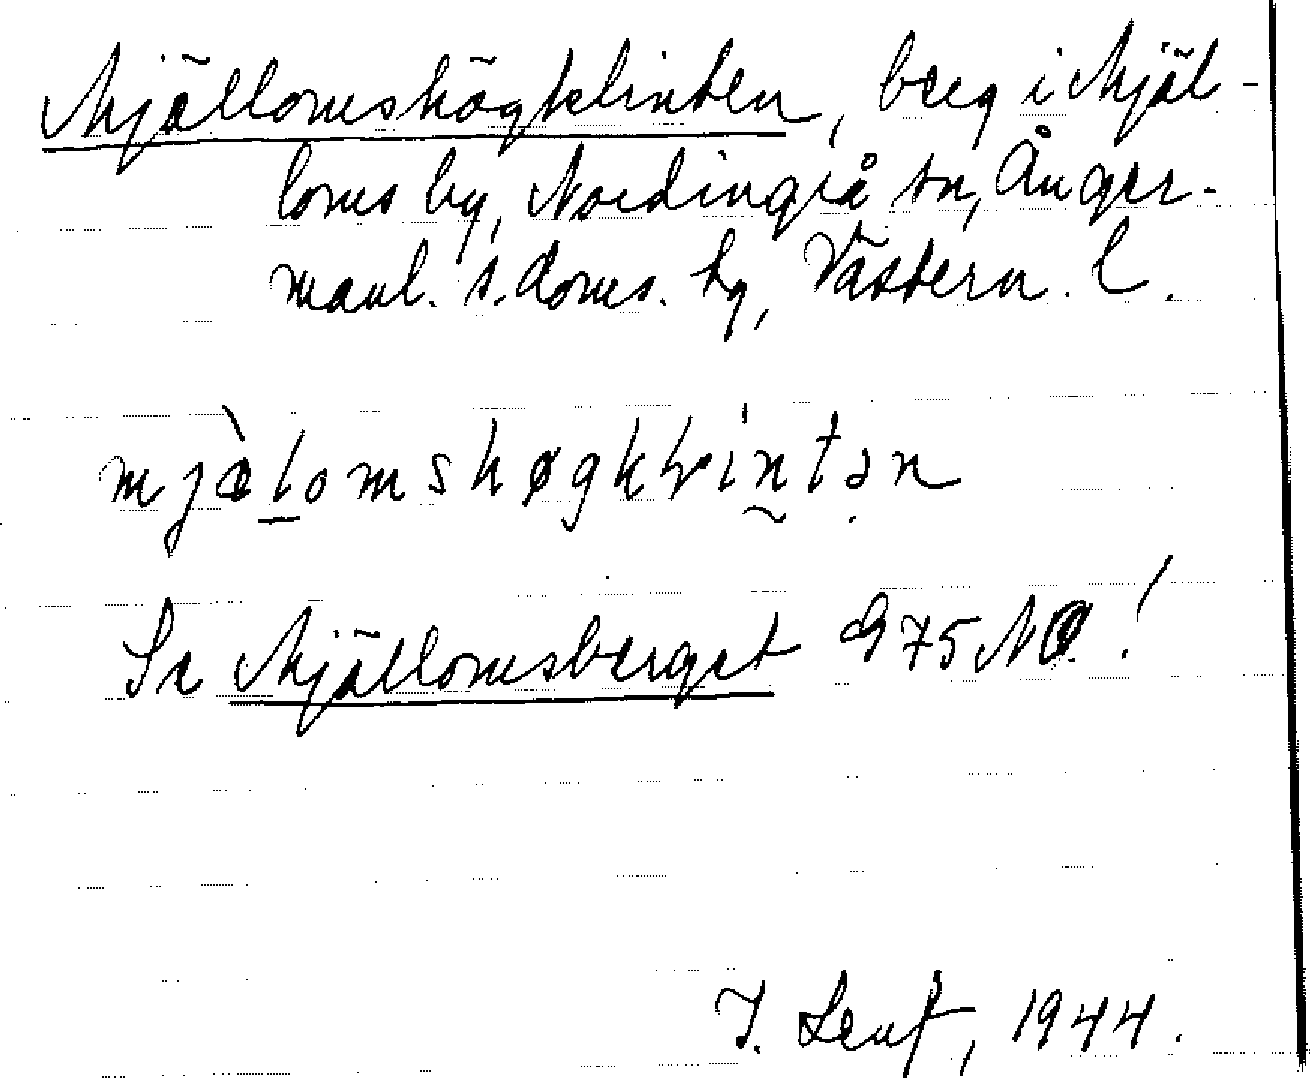 Mjällomshögklinten, berg i Mjäl-
loms by, Nordingrå sn, Ånger-
manl. s. doms. hg, Västern. l.
mjàlomshøgklintən
Se Mjällomsberget 975 NO!
J. Leuf, 1944.